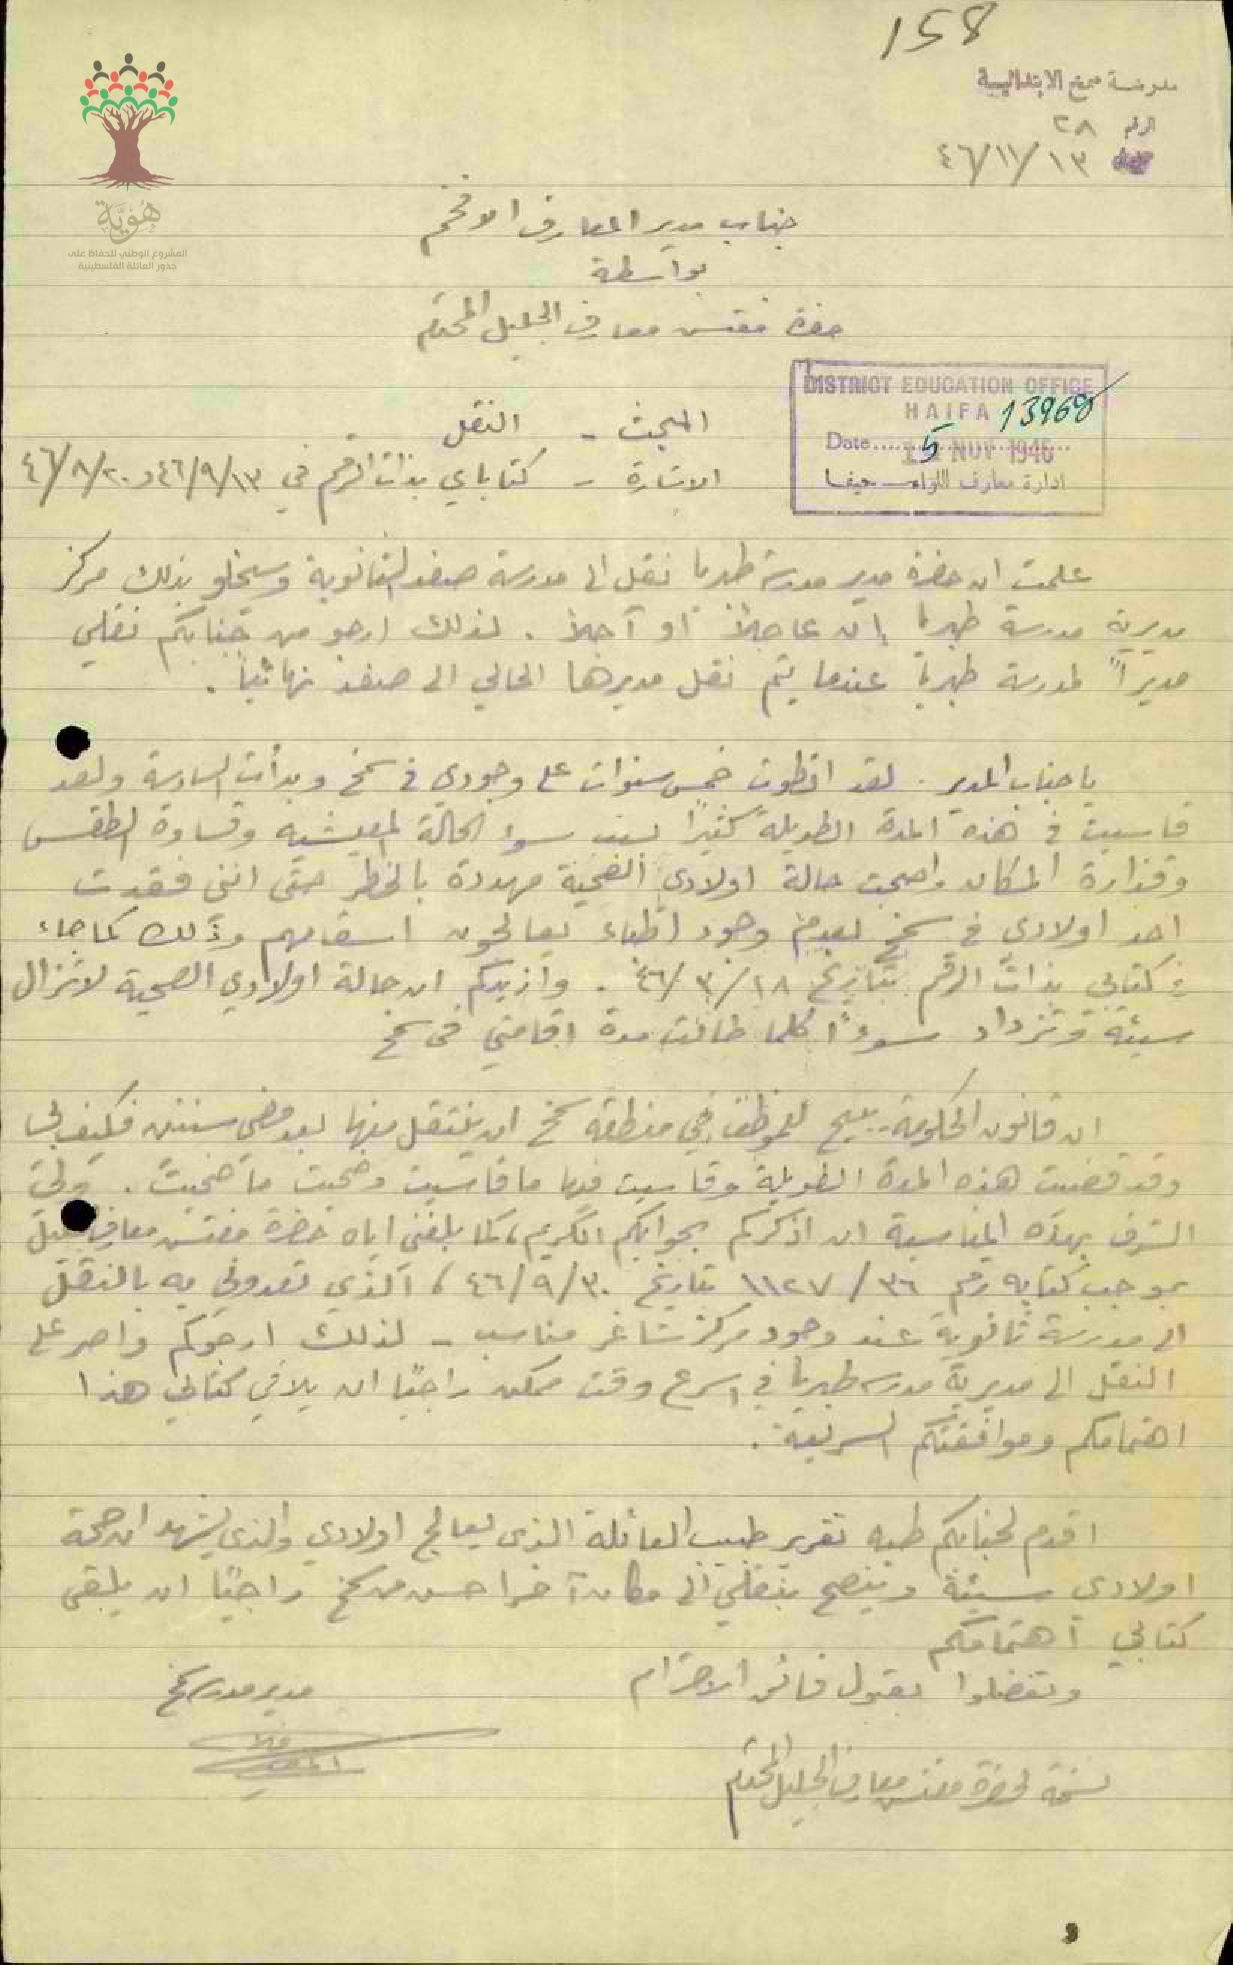 158
مدرسة سمخ الابتدائية
الرقم ٢٨
٤٦/١١/١٣
هُوِيَّة
المشروع الوطني للحفاظ على
جذور العائلة الفلسطينية
جناب مدير المعارف الافخم
بواسطة
حضرة مفتش معارف الجليل المحترم
DISTRICT EDUCATION OFFICE
HAIFA 13968
Date 15 NOV 1946
ادارة معارف اللواء حيفا
المبحث - النقل
الاشارة - كتاباي بذات الرقم في ٤٦/٩/١٣ و ٤٦/٨/٢٠
علمت ان حضرة مدير مدرسة طبريا نقل الى مدرسة صفد الثانوية وسيخلو بذلك مركز
مديرية مدرسة طبريا إن عاجلاً او آجلاً . لذلك ارجو من جنابكم نقلي
مديراً لمدرسة طبريا عندما يتم نقل مديرها الحالي الى صفد نهائياً .
يا جناب المدير . لقد انطوت خمس سنوات على وجودي في سمخ وبدأت السادسة ولقد
قاسيت في هذه المدة الطويلة كثيراً بسبب سوء الحالة المعيشية وقساوة الطقس
وقذارة المكان واصبحت حالة اولادي الصحية مهددة بالخطر حتى انني فقدت
احد اولادي في سمخ لعدم وجود اطباء يعالجون اسقامهم وذلك كما جاء
في كتابي بذات الرقم بتاريخ ٤٦/٣/١٨ . وازيدكم ان حالة اولادي الصحية لا تزال
سيئة وتزداد سوءاً كلما طالت مدة اقامتي في سمخ
ان قانون الحكومة يبيح للموظف في منطقة سمخ ان ينتقل منها بعد مضي سنتين فكيف بي
وقد قضيت هذه المدة الطويلة وقاسيت فيها ما قاسيت وضحيت ما ضحيت . ولي
الشرف بهذه المناسبة ان اذكركم بجوابكم الكريم، كما بلغني اياه حضرة مفتش معارف الجليل
بموجب كتابه رقم ٣٦/ ١١٢٧ بتاريخ ٤٦/٩/٣٠ ، الذي تعدوني به بالنقل
الى مدرسة ثانوية عند وجود مركز شاغر مناسب - لذلك ارجوكم واصر على
النقل الى مديرية مدرسة طبريا في اسرع وقت ممكن راجيًا ان يلاقي كتابي هذا
اهتمامكم وموافقتكم السريعة .
اقدم لجنابكم طيه تقرير طبيب العائلة الذي يعالج اولادي والذي يشهد ان صحة
اولادي سيئة وينصح بنقلي الى مكان آخر احسن من سمخ راجيًا ان يلقى
كتابي اهتمامكم
وتفضلوا بقبول فائق الاحترام
مدير مدرسة سمخ
نسخة لحضرة مفتش معارف الجليل المحترم